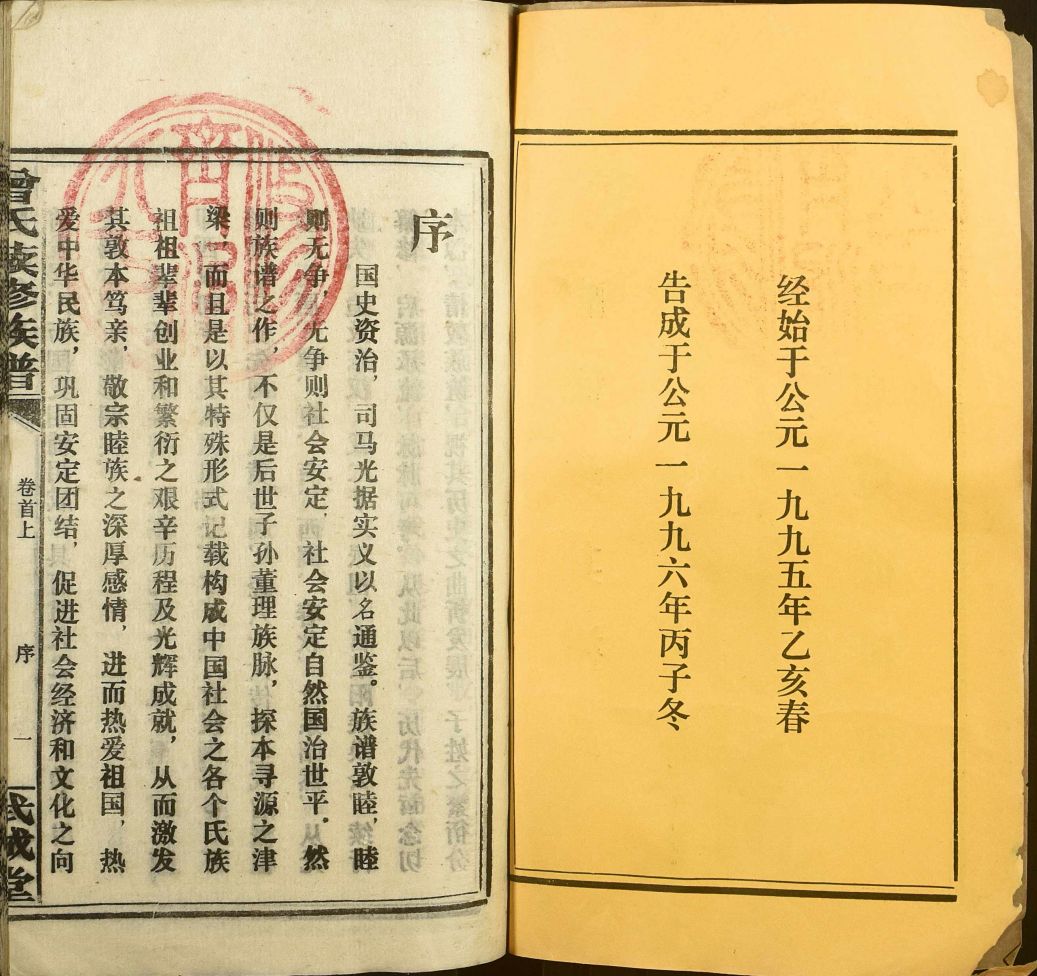 经始于公元一九九五年乙亥春
告成于公元一九九六年丙子冬
序
国史资治，司马光据实义以名通鉴。族谱敦睦，睦
则无争，无争则社会安定，社会安定自然国治世平。然
则族谱之作，不仅是后世子孙董理族脉，探本寻源之津
梁，而且是以其特殊形式记载构成中国社会之各个氏族
祖祖辈辈创业和繁衍之艰辛历程及光辉成就，从而激发
其敦本笃亲，敬宗睦族之深厚感情，进而热爱祖国，热
爱中华民族，巩固安定团结，促进社会经济和文化之向
曾氏续修族谱
卷首上
序
一
武城堂